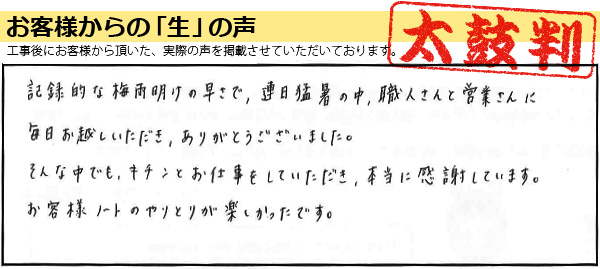 お客様からの「生」の声
太鼓判
工事後にお客様から頂いた、実際の声を掲載させていただいております。
記録的な梅雨明けの早さで、連日猛暑の中、職人さんと営業さんに
毎日お越しいただき、ありがとうございました。
そんな中でも、キチンとお仕事をしていただき、本当に感謝しています。
お客様ノートのやりとりが楽しかったです。